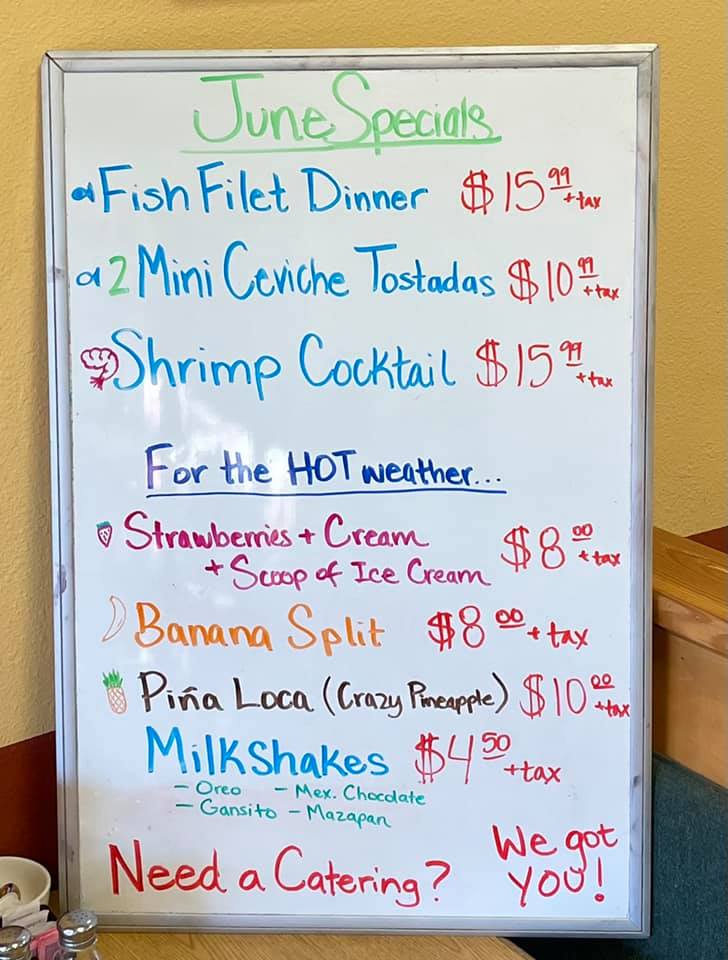 June Specials
Fish Filet Dinner $15.99 + tax
2 Mini Ceviche Tostadas $10.99 + tax
Shrimp Cocktail $15.99 + tax
For the HOT weather...
Strawberries + Cream $8.00 + tax
+ Scoop of Ice Cream
Banana Split $8.00 + tax
Piña Loca (Crazy Pineapple) $10.00 + tax
Milkshakes $4.50 + tax
- Oreo - Mex. Chocolate
- Gansito - Mazapan
Need a Catering? We got
YOU!